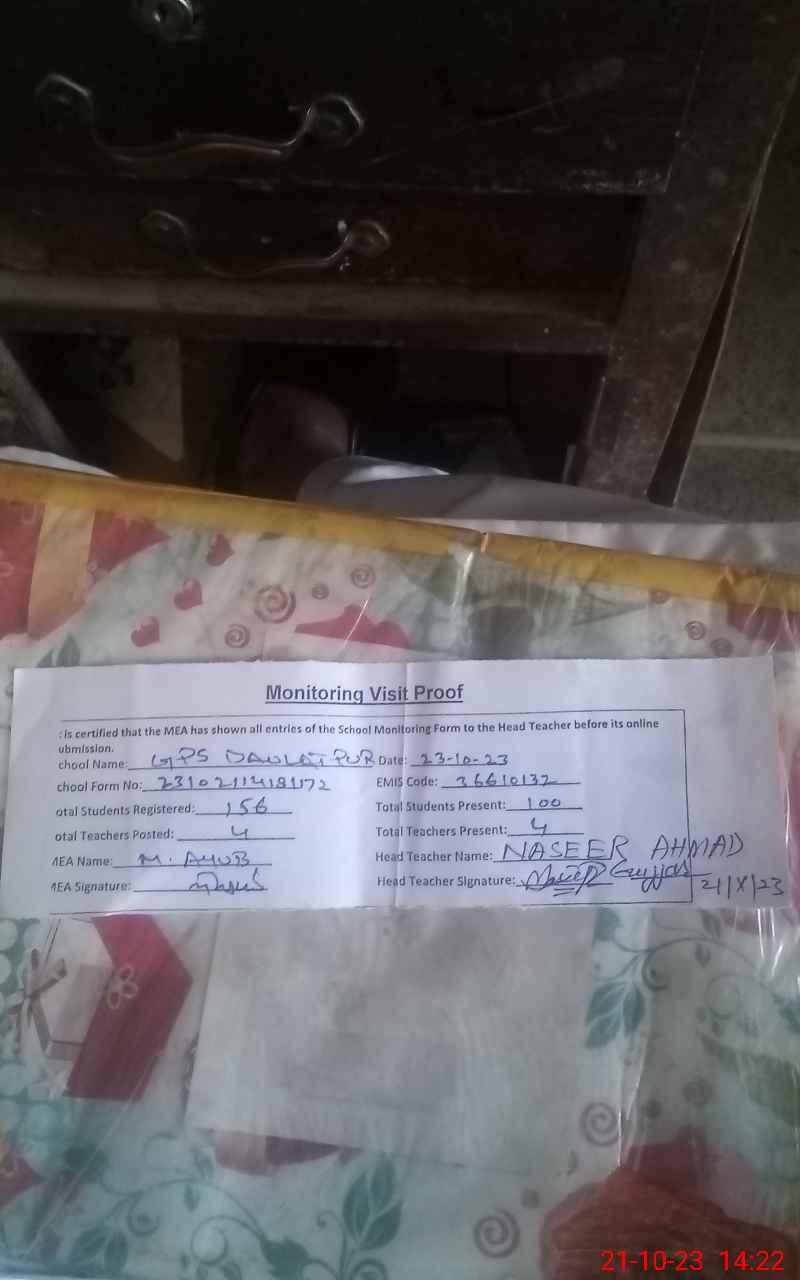 Monitoring Visit Proof
: is certified that the MEA has shown all entries of the School Monitoring Form to the Head Teacher before its online
ubmission.
chool Name: GPS DAULAT PUR Date: 23-10-23
chool Form No: 23102114181172 EMIS Code: 36610132
otal Students Registered: 156 Total Students Present: 100
otal Teachers Posted: 4 Total Teachers Present: 4
MEA Name: M. AYUB Head Teacher Name: NASEER AHMAD
MEA Signature: Head Teacher Signature: Gujjar
21/X/23
21-10-23 14:22